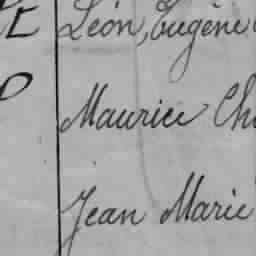 Léon, Eugène
Maurice Ch
Jean Marie